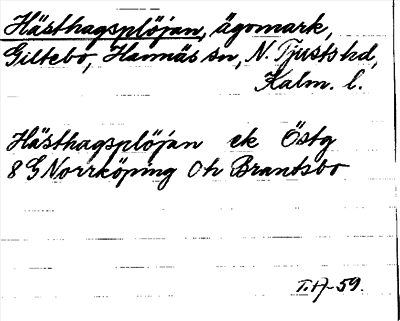 Hästhagsplöjan, ägomark,
Giltebo, Hannäs sn, N. Tjusts hd,
Kalm. l.
Hästhagsplöjan ek Östg
8 G Norrköping 0 h Brantsbo
T.A-59.